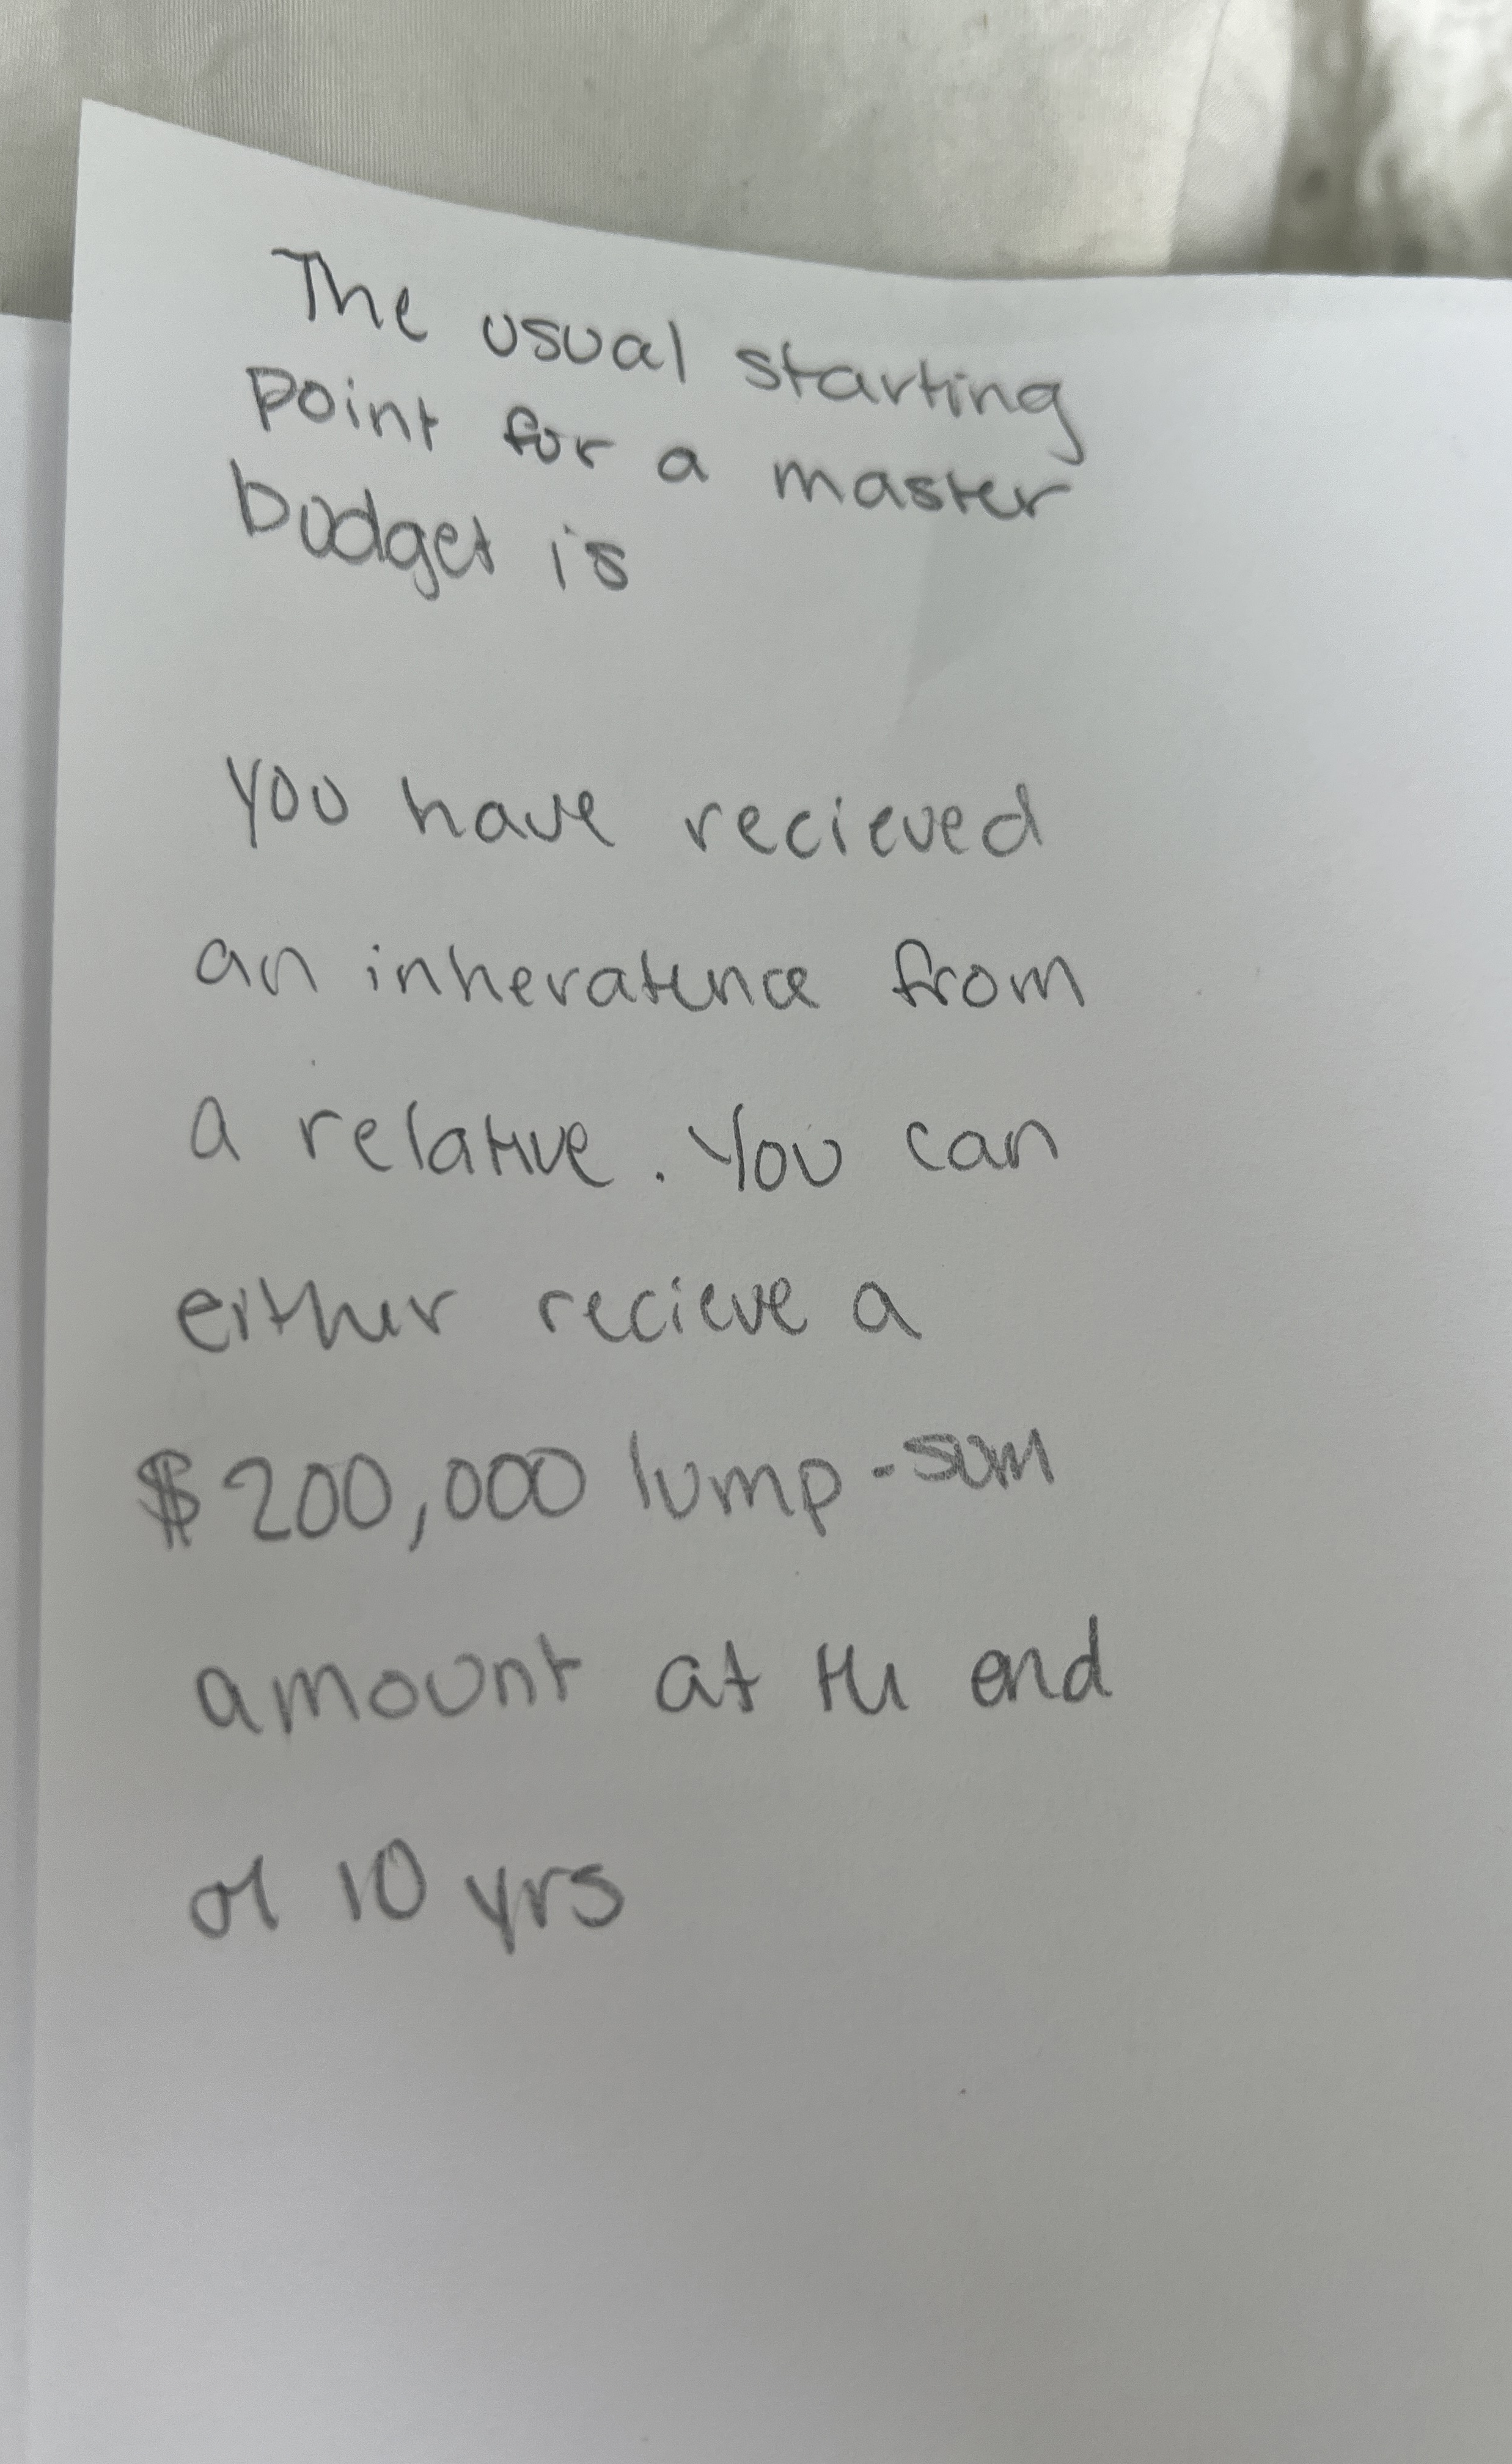 The usual starting
point for a master
budget is
You have recieved
an inheratence from
a relative. You can
either recieve a
$200,000 lump-sum
amount at the end
of 10 yrs